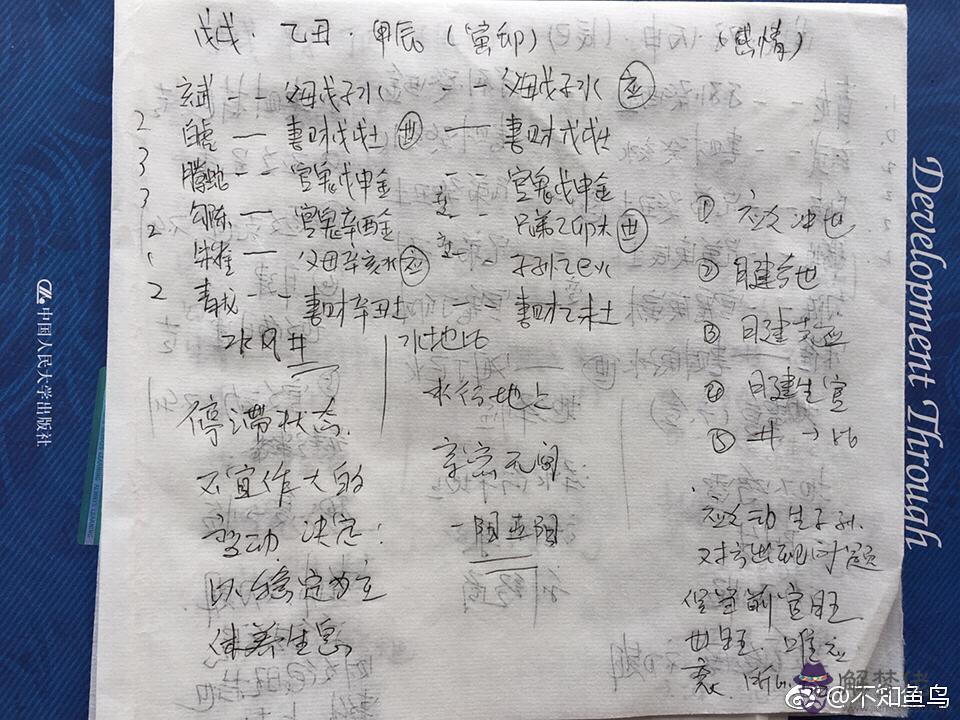 戊戌·乙丑·甲辰(寅卯) (感情)
玄武 -- 父母戊子水 -- 父母戊子水 应
2 白虎 — 妻财戊戌土 世 — 妻财戊戌土
3 腾蛇 -- 官鬼戊申金 -- 官鬼戊申金
3 勾陈 — 官鬼辛酉金 -- 兄弟乙卯木 世
2
1 朱雀 — 父母辛亥水 应 -- 子孙乙巳火
2 青龙 -- 妻财辛丑土 -- 妻财乙未土
水风井
水地比
停滞状态.
不宜作大的
变动 决定:
以稳定为主
休养生息
水行地上
亲密无间
① 应爻冲世
② 日建合世
③ 日建克应
④ 日建生官
⑤ 井→比
应爻动生子孙.
对方出现问题
但当前官旺
世旺. 唯应
衰.
中国人民大学出版社
Development Through
解梦佬
@不知鱼鸟